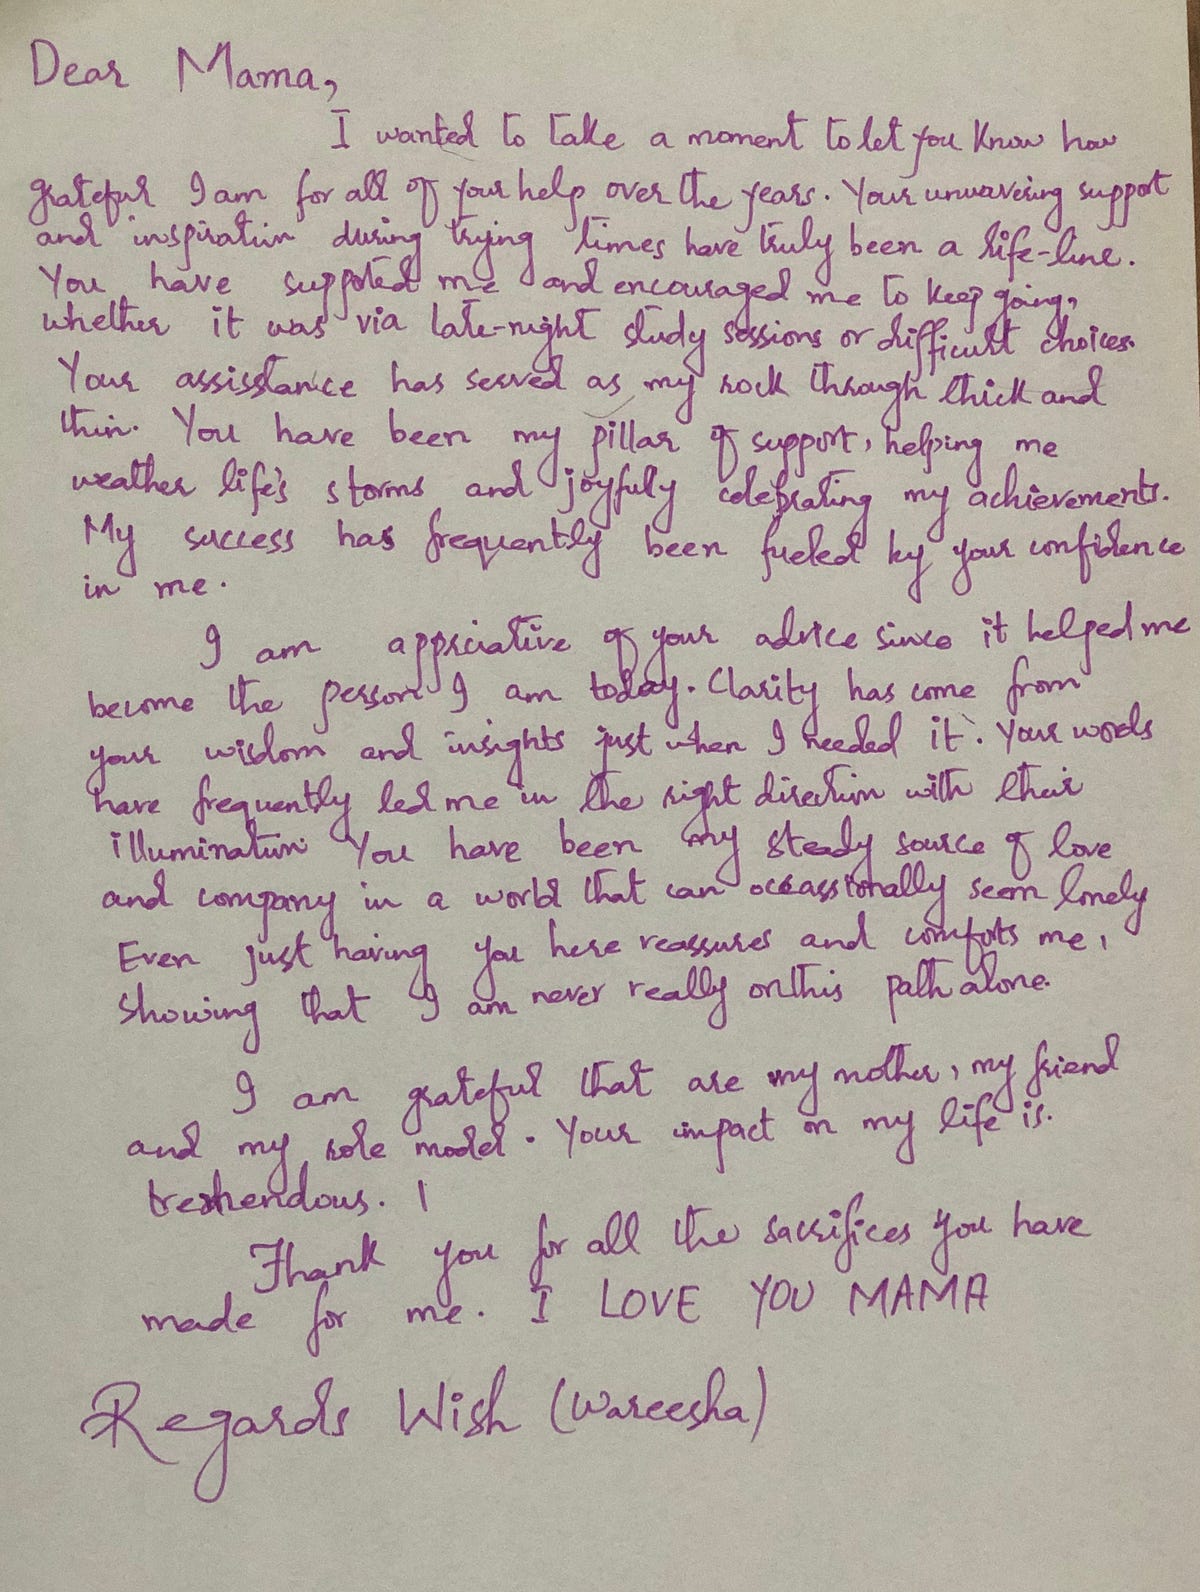 Dear Mama,
I wanted to take a moment to let you know how
grateful I am for all of your help over the years. Your unwavering support
and inspiration during trying times have truly been a life-line.
You have supported me and encouraged me to keep going,
whether it was via late-night study sessions or difficult choices.
Your assisstance has served as my rock through thick and
thin. You have been my pillar of support, helping me
weather life's storms and joyfully celebrating my achievements.
My success has frequently been fueled by your confidence
in me.
I am appriciative of your advice since it helped me
become the person I am today. Clarity has come from
your wisdom and insights just when I needed it. Your words
have frequently led me in the right direction with their
illumination. You have been my steady source of love
and company in a world that can occassionally seem lonely
Even just having you here reassures and comforts me,
showing that I am never really on this path alone.
I am grateful that are my mother, my friend
and my role model. Your impact on my life is.
tremendous. I
Thank you for all the sacrifices you have
made for me. I LOVE YOU MAMA
Regards Wish (Wareesha)